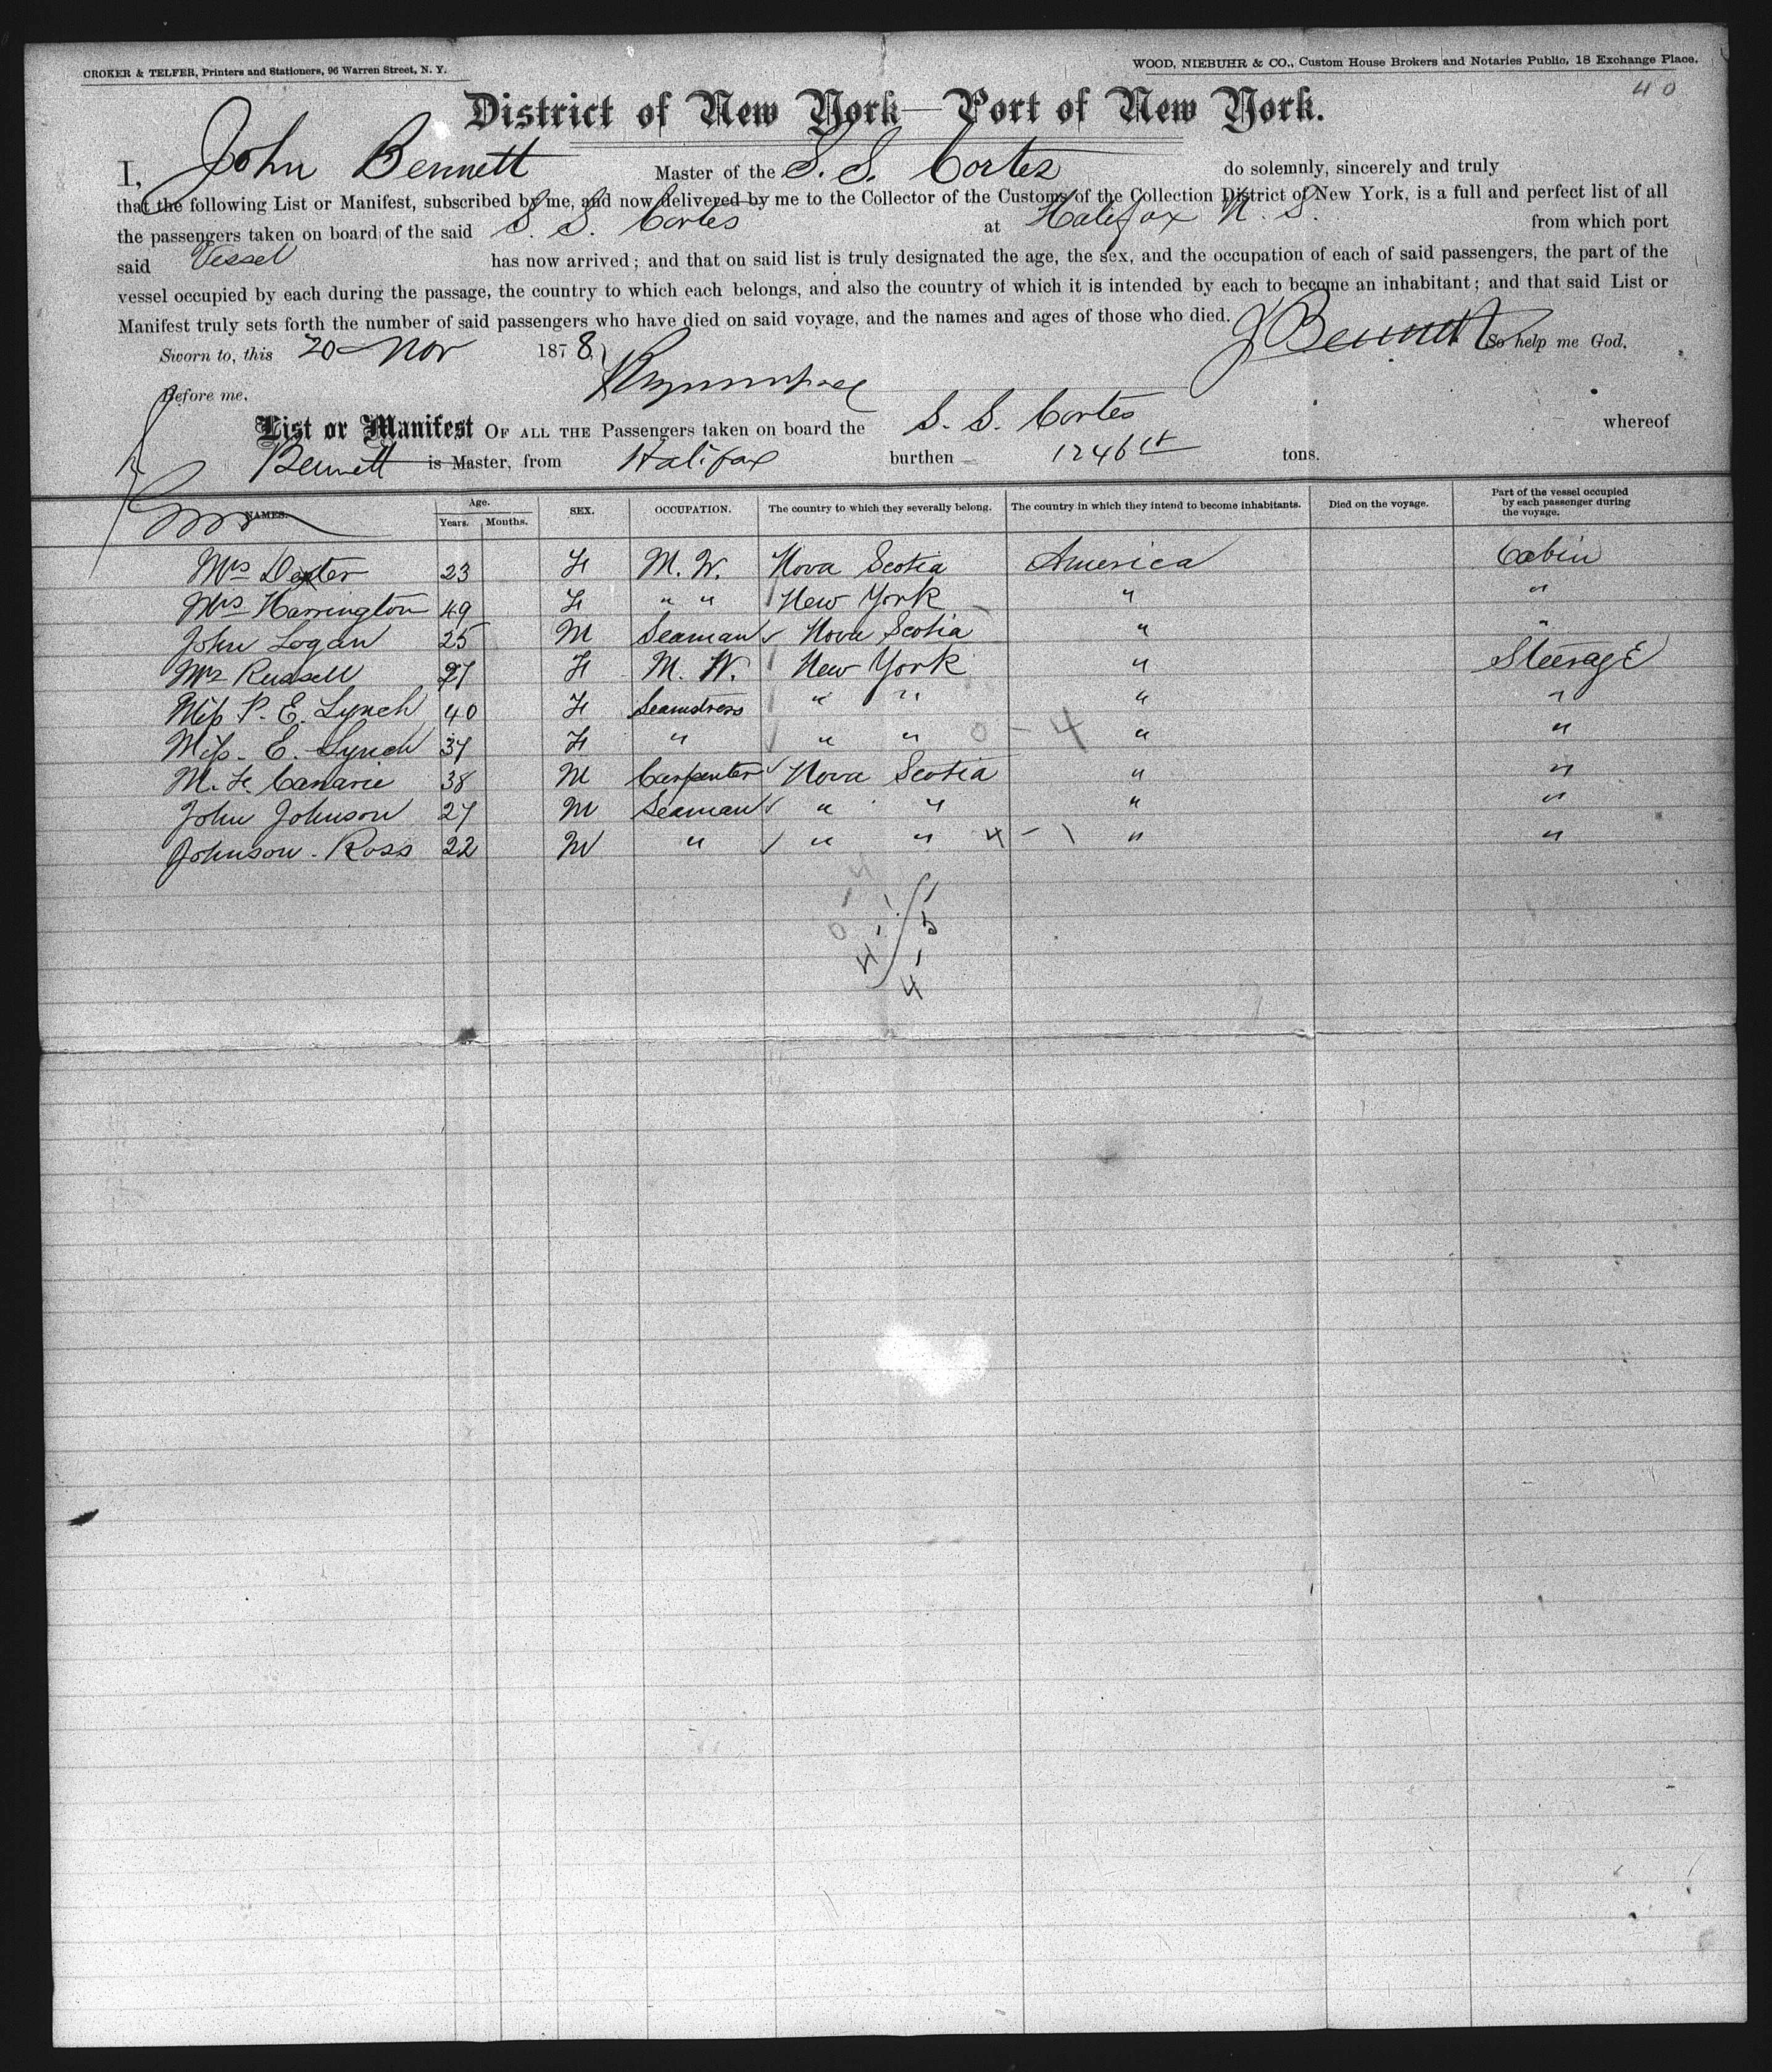 CROKER & TELFER, Printers and Stationers, 96 Warren Street, N. Y.
WOOD, NIEBUHR & CO., Custom House Brokers and Notaries Public, 18 Exchange Place.
40
District of New York—Port of New York.
I, John Bennett Master of the S. S. Cortes do solemnly, sincerely and truly
that the following List or Manifest, subscribed by me, and now delivered by me to the Collector of the Customs of the Collection District of New York, is a full and perfect list of all
the passengers taken on board of the said S. S. Cortes at Halifax N. S. from which port
said Vessel has now arrived; and that on said list is truly designated the age, the sex, and the occupation of each of said passengers, the part of the
vessel occupied by each during the passage, the country to which each belongs, and also the country of which it is intended by each to become an inhabitant; and that said List or
Manifest truly sets forth the number of said passengers who have died on said voyage, and the names and ages of those who died.
Sworn to, this 20 Nov 1878 J Bennett So help me God.
Before me,
List or Manifest OF ALL THE Passengers taken on board the S. S. Cortes whereof
Bennett is Master, from Halifax burthen 1246 tons.
NAMES. Age. Years. Months. SEX. OCCUPATION. The country to which they severally belong. The country in which they intend to become inhabitants. Died on the voyage. Part of the vessel occupied by each passenger during the voyage.
Mrs Dexter 23 F M. W. Nova Scotia America Cabin
Mrs Harrington 49 F " " New York " "
John Logan 25 M Seaman Nova Scotia " "
Mrs Russell 27 F M. W. New York " Steerage
Miss P. E. Lynch 40 F Seamstress " " " "
Miss. E. Lynch 37 F " " " 0 - 4 " "
M. F. Canarie 38 M Carpenter Nova Scotia " "
John Johnson 27 M Seaman " " " "
Johnson. Ross 22 M " " " 4 - 1 " "